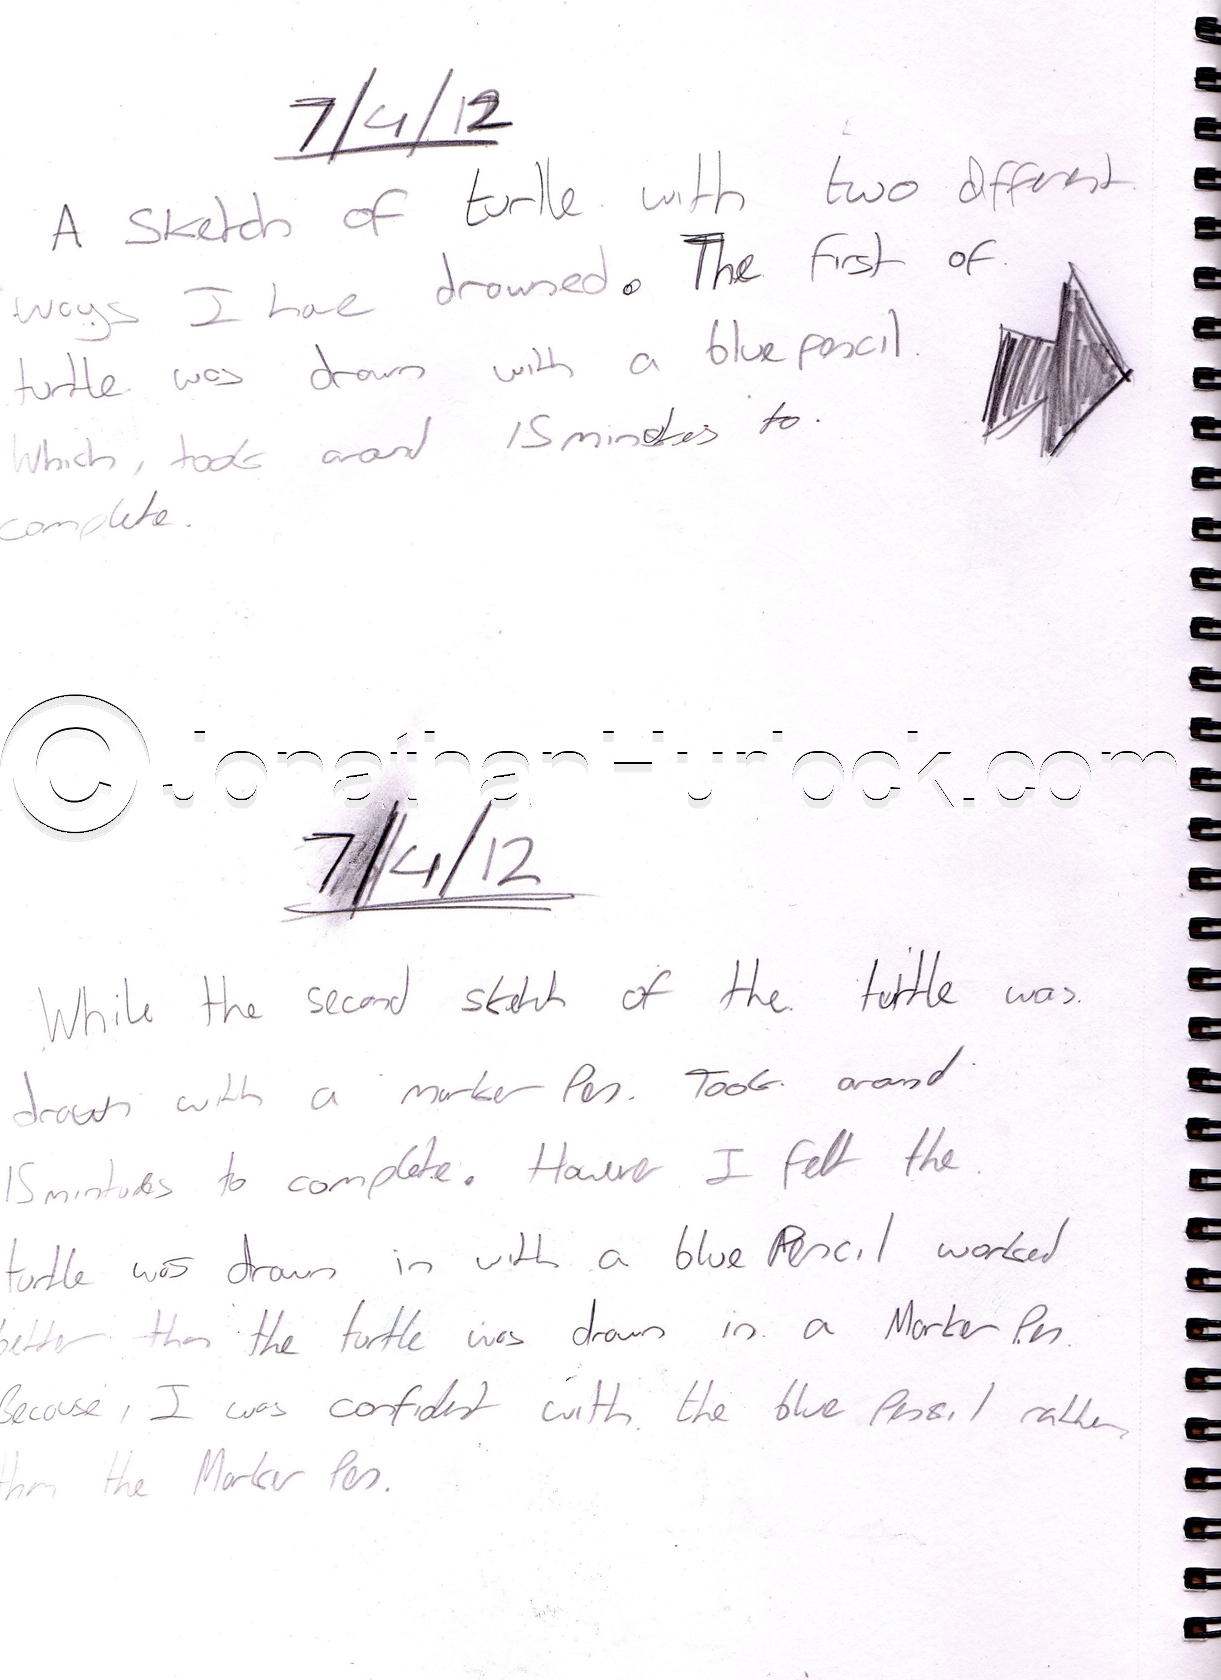 7/4/12
A sketch of turtle with two different
ways I have drowsed. The first of
turtle was drawn with a blue pencil.
Which, took around 15 minutes to.
complete.
© JonathanHurlock.com
7/4/12
While the second sketch of the turtle was
drawn with a marker Pen. Took around
15 mintues to complete. However I felt the
turtle was drawn in with a blue Pencil worked
better than the turtle was drawn in a Marker Pen.
Because, I was confident with the blue Pencil rather
than the Marker Pen.